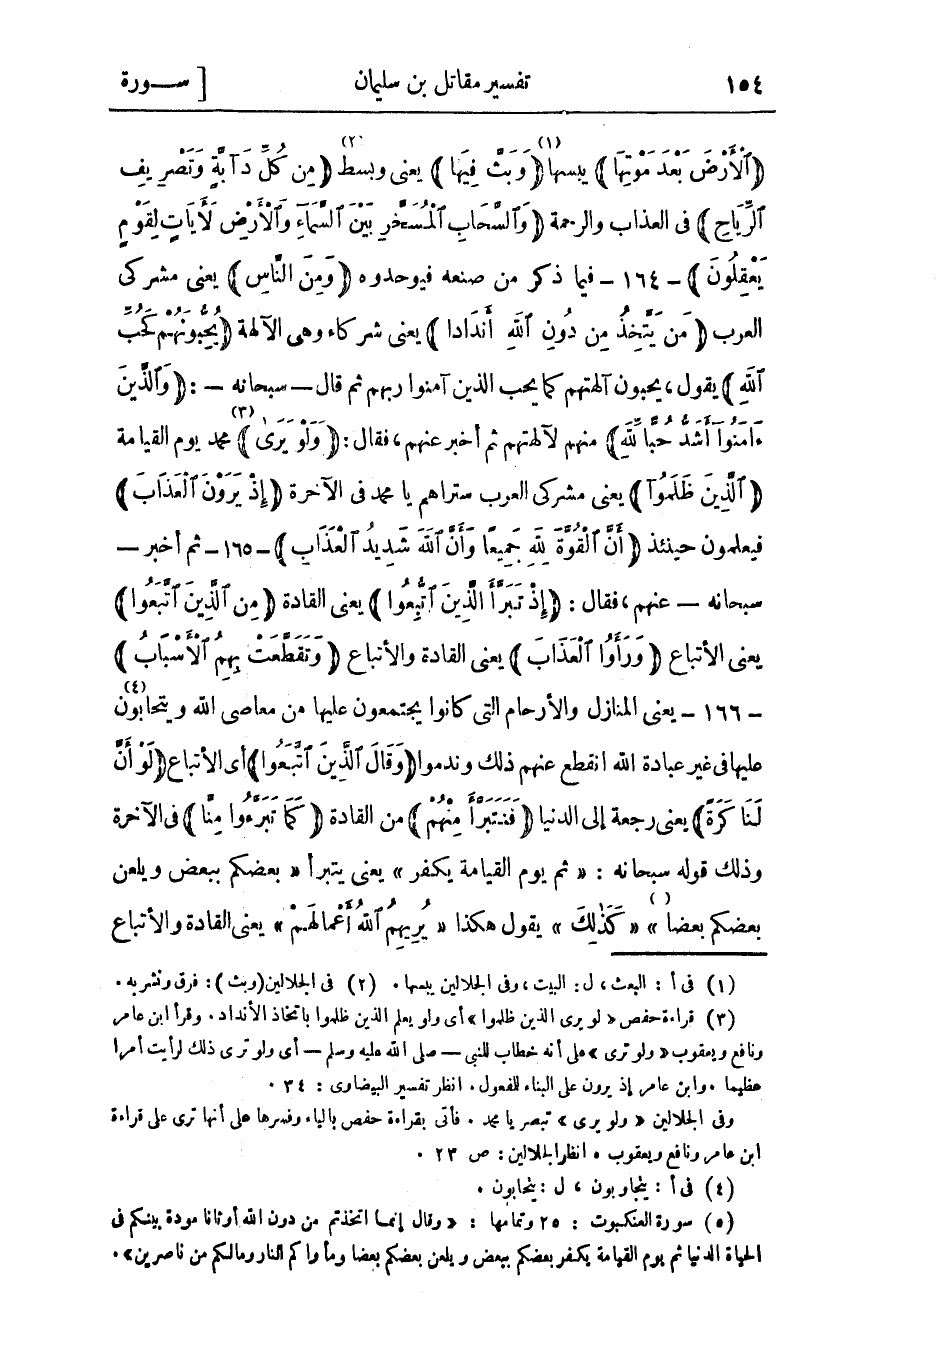 ١٥٤ تفسير مقاتل بن سليمان [ ســورة
﴿ ٱلْأَرْضَ بَعْدَ مَوْتِهَا ﴾ يبسها(١) ﴿ وَبَثَّ فِيهَا ﴾ يعنى وبسط(٢) ﴿ مِن كُلِّ دَآبَّةٍ وَتَصْرِيفِ
ٱلرِّيَاحِ ﴾ فى العذاب والرحمة ﴿ وَٱلسَّحَابِ ٱلْمُسَخَّرِ بَيْنَ ٱلسَّمَآءِ وَٱلْأَرْضِ لَأَيَاتٍ لِقَوْمٍ
يَعْقِلُونَ ﴾ - ١٦٤ - فيما ذكر من صنعه فيوحدوه ﴿ وَمِنَ النَّاسِ ﴾ يعنى مشركى
العرب ﴿ مَن يَتَّخِذُ مِن دُونِ ٱللَّهِ أَندَادا ﴾ يعنى شركاء وهى الآلهة ﴿ يُحِبُّونَهُمْ كَحُبِّ
ٱللَّهِ ﴾ يقول ، يحبون آلهتهم كما يحب الذين آمنوا ربهم ثم قال — سبحانه — : ﴿ وَٱلَّذِينَ
ءَامَنُوٓا أَشَدُّ حُبًّا لِلَّهِ ﴾ منهم لآلهتهم ثم أخبر عنهم ، فقال : ﴿ وَلَوْ يَرَىٰ(٣) ﴾ محمد يوم القيامة
﴿ ٱلَّذِينَ ظَلَمُوٓا ﴾ يعنى مشركى العرب ستراهم يا محمد فى الآخرة ﴿ إِذْ يَرَوْنَ ٱلْعَذَابَ ﴾
فيعلمون حينئذ ﴿ أَنَّ ٱلْقُوَّةَ لِلَّهِ جَمِيعًا وَأَنَّ ٱللَّهَ شَدِيدُ ٱلْعَذَابِ ﴾ - ١٦٥ - ثم أخبر —
سبحانه — عنهم ، فقال : ﴿ إِذْ تَبَرَّأَ الَّذِينَ ٱتُّبِعُوا ﴾ يعنى القادة ﴿ مِن ٱلَّذِينَ ٱتَّبَعُوا ﴾
يعنى الأتباع ﴿ وَرَأَوُا ٱلْعَذَابَ ﴾ يعنى القادة والأتباع ﴿ وَتَقَطَّعَتْ بِهِمُ ٱلْأَسْبَابُ ﴾
- ١٦٦ - يعنى المنازل والأرحام التى كانوا يجتمعون عليها من معاصى الله ويتحابون(٤)
عليها فى غير عبادة الله انقطع عنهم ذلك وندموا ﴿ وَقَالَ ٱلَّذِينَ ٱتَّبَعُوا ﴾ أى الأتباع ﴿ لَوْ أَنَّ
لَنَا كَرَّةً ﴾ يعنى رجعة إلى الدنيا ﴿ فَنَتَبَرَّأَ مِنْهُمْ ﴾ من القادة ﴿ كَمَا تَبَرَّءُوا مِنَّا ﴾ فى الآخرة
وذلك قوله سبحانه : « ثم يوم القيامة يكفر » يعنى يتبرأ « بعضكم ببعض ويلعن
بعضكم بعضا( ) » « كَذَٰلِكَ » يقول هكذا « يُرِيهِمُ ٱللَّهُ أَعْمَالَهُمْ » يعنى القادة والأتباع
(١) فى أ : البعث ، ل : البيت ، وفى الجلالين يبسها . (٢) فى الجلالين (وبث) : فرق ونشر به .
(٣) قراءة حفص « لو يرى الذين ظلموا » أى ولو يعلم الذين ظلموا باتخاذ الأنداد . وقرأ ابن عامر
ونافع ويعقوب « ولو ترى » على أنه خطاب للنبى — صلى الله عليه وسلم — أى ولو ترى ذلك لرأيت أمرا
عظيما . وابن عامر إذ يرون على البناء للمفعول . انظر تفسير البيضاوى : ٣٤ .
وفى الجلالين « ولو يرى » تبصر يا محمد . فأتى بقراءة حفص بالياء وفسرها على أنها ترى على قراءة
ابن عامر ونافع ويعقوب . انظر الجلالين : ص ٢٣ .
(٤) فى أ : يتجاوبون ، ل : يتحابون .
(٥) سورة العنكبوت : ٢٥ وتمامها : « وقال إنما اتخذتم من دون الله أوثانا مودة بينكم فى
الحياة الدنيا ثم يوم القيامة يكفر بعضكم ببعض ويلعن بعضكم بعضا ومأواكم النار ومالكم من ناصرين» .